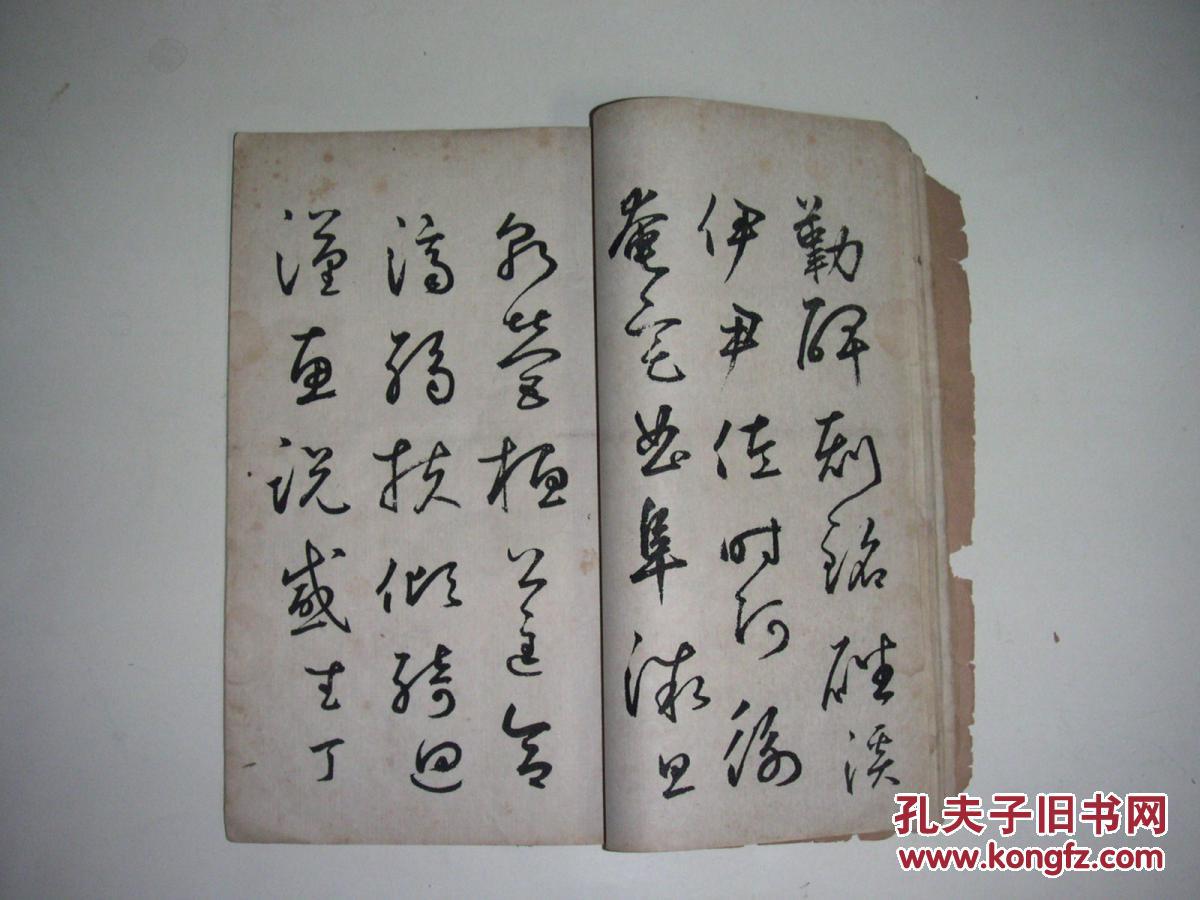 勒碑刻銘磻溪
伊尹佐時阿衡
奄宅曲阜微旦
孰營桓公匡合
濟弱扶傾綺迴
漢惠說感武丁
孔夫子旧书网
www.kongfz.com